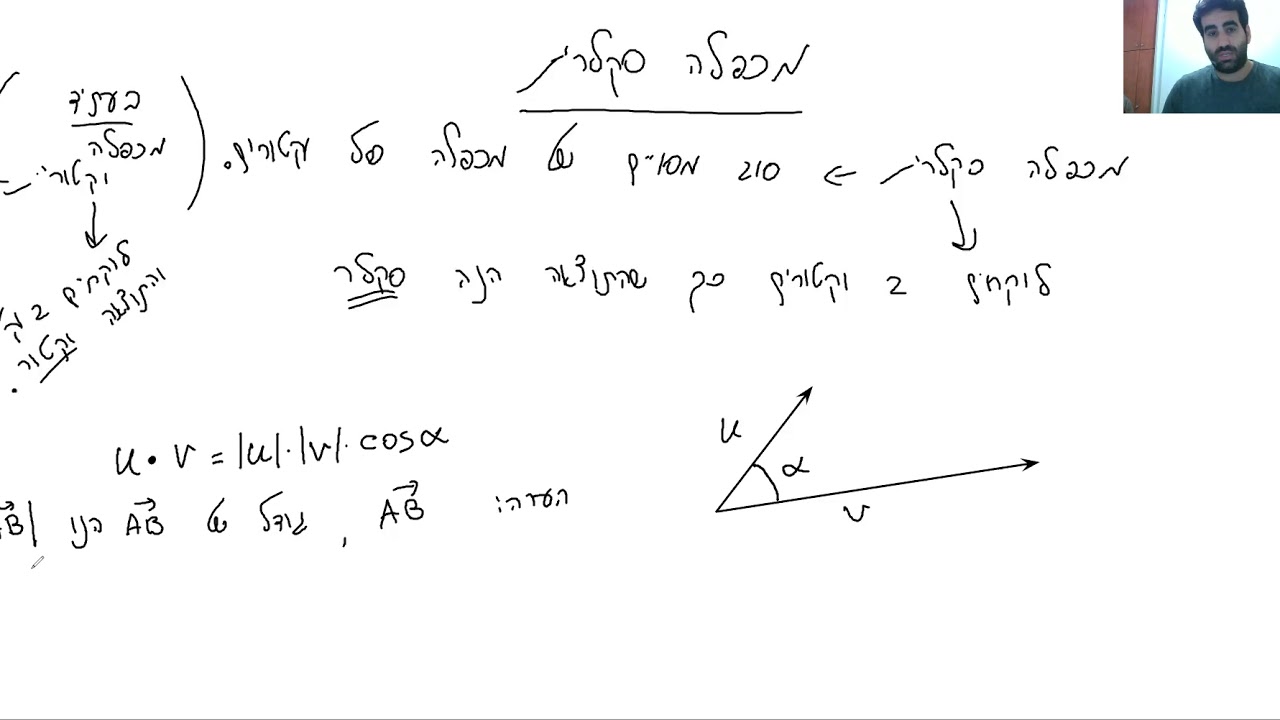 מכפלה סקלרית
מכפלה סקלרית ← סוג מסויים של מכפלה של וקטורים.
לוקחים 2 וקטורים כך שהתוצאה הנה סקלר
(בעתיד
מכפלה
וקטורית
לוקחים 2
והתוצאה
וקטור.
u • v = |u|·|v|·cosα
הערה: AB⃗ , גודל של AB⃗ הנו
u
α
v